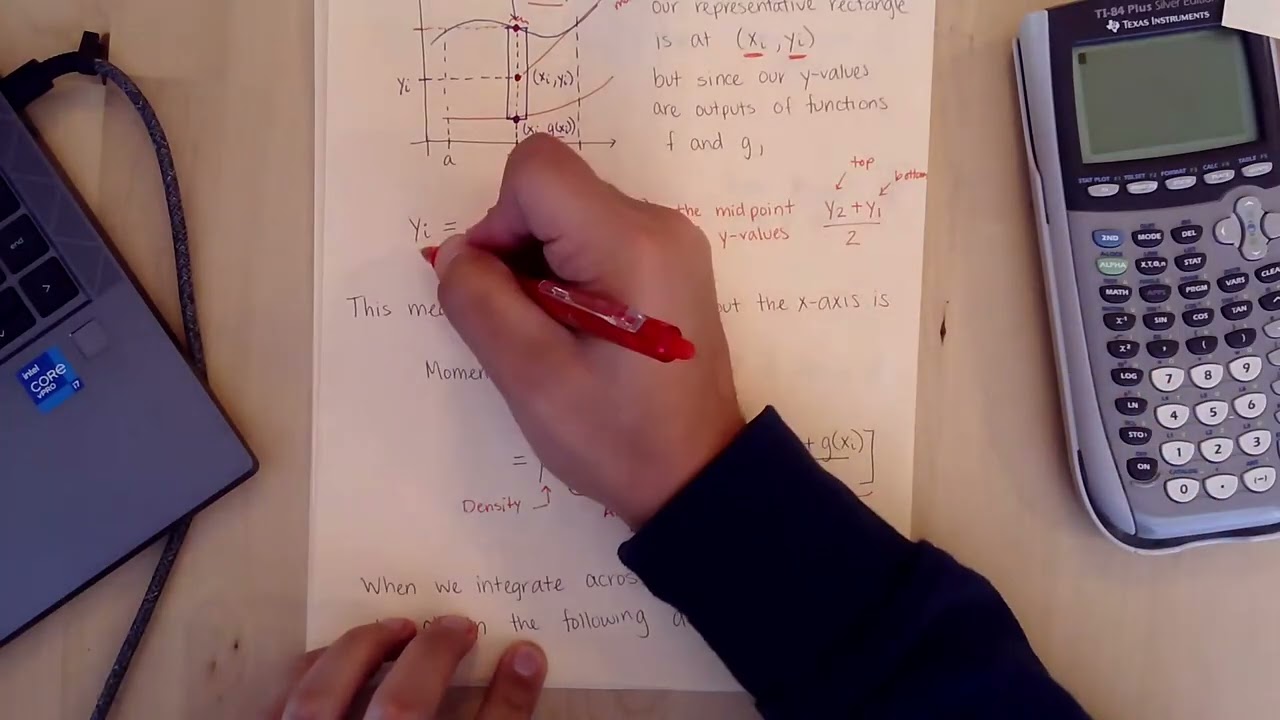 our representative rectangle
is at (xi, yi)
but since our y-values
are outputs of functions
f and g,
yi
(xi, yi)
(xi, g(xi))
a
top
bottom
yi =
the midpoint
y-values
y2 + y1
2
This
out the x-axis is
=
+ g(xi)]
Density
When we integrate
the following
TI-84 Plus Silver Edition
TEXAS INSTRUMENTS
STAT PLOT F1 TBLSET F2 FORMAT F3 CALC F4 TABLE F5
2ND MODE DEL
ALPHA X,T,θ,n STAT
MATH APPS PRGM VARS CLEA
x⁻¹ SIN COS TAN
x² , ( )
LOG 7 8 9
LN 4 5 6
STO› 1 2 3
ON 0 . (-)
end
intel
CORE
vPRO i7